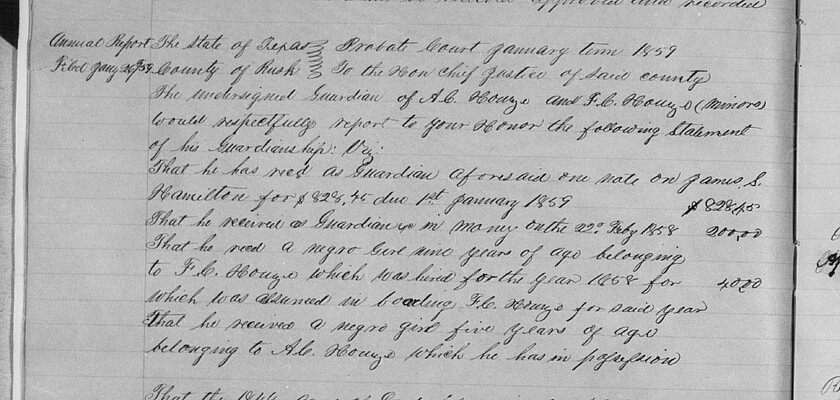 approved and recorded
Annual Report The State of Texas Probate Court January term 1859
Filed Jany 26th 59 County of Rusk To the Hon Chief Justice of said county
The undersigned Guardian of A.C. Houze and F.C. Houze (minors)
would respectfully report to your Honor the following Statement
of his Guardianship: Viz:
That he has recd as Guardian aforesaid one note on James S.
Hamilton for $828,45 due 1st January 1859 $828,45
That he received as Guardian in money on the 22d Feby 1858 200,00
That he recd a negro Girl nine years of age belonging
to F.C. Houze which was hired for the year 1858 for 40 00
which was assumed in boarding F.C. Houze for said year
That he received a negro girl five years of age
belonging to A.C. Houze which he has in possession
That the